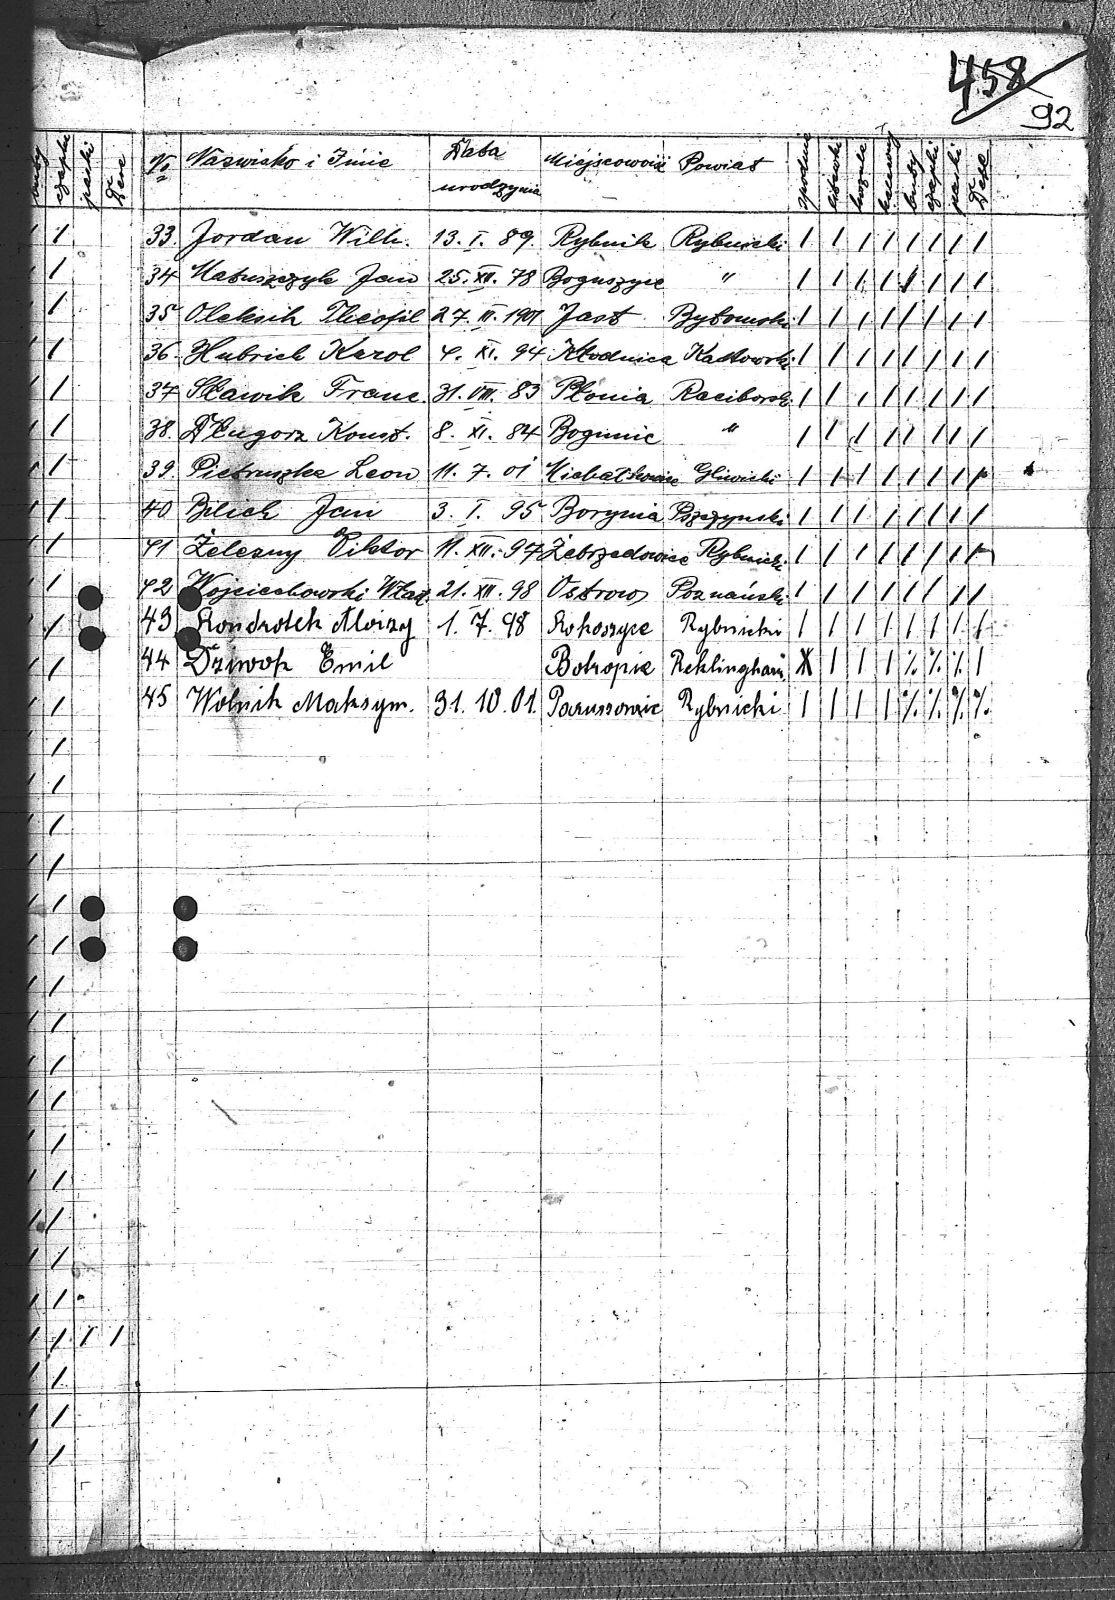 458
92
№ Nazwisko i Imie Data urodzynia Miejscowość Powiat spodnie bluzki buty czapki paski Deke
33. Jordan Wilh. 13. I. 89. Rybnik Rybnicki / / / / / / / /
34 Matuszczyk Jan 25. XII. 78 Boguszyce " / / / / / / / /
35 Oleksik Theofil 27. III. 1901 Jast Bytomski / / / / / / / /
36. Hubrich Karol 4. XI. 94 Kłodnica Kattowski / / / / / / / /
37 Sławik Franc. 31. VIII. 83 Płonia Raciborski / / / / / / / /
38. Długorz Konst. 8. XI. 84 Bogunic " / / / / / / / /
39. Pietruszka Leon 11. 7. 01 Michałkowice Gliwicki / / / / / / / /
40 Bilich Jan 3. I. 95 Borynia Pszczynski / / / / / / / /
41 Żelezny Wiktor 11. XII. 97 Żebrzydowice Rybnicki / / / / / / / /
42 Wojciechowski Wład. 21. XII. 98 Ostrowo Poznański / / / / / / / /
43 Kondrotek Alojzy 1. 7. 98 Rokoszyce Rybnicki / / / / / / / /
44 Dziwok Emil Botropie Reklinghaus / / / % % % /
45 Wolnik Maksym. 31. 10. 01. Paruszowic Rybnicki / / / / % % % %